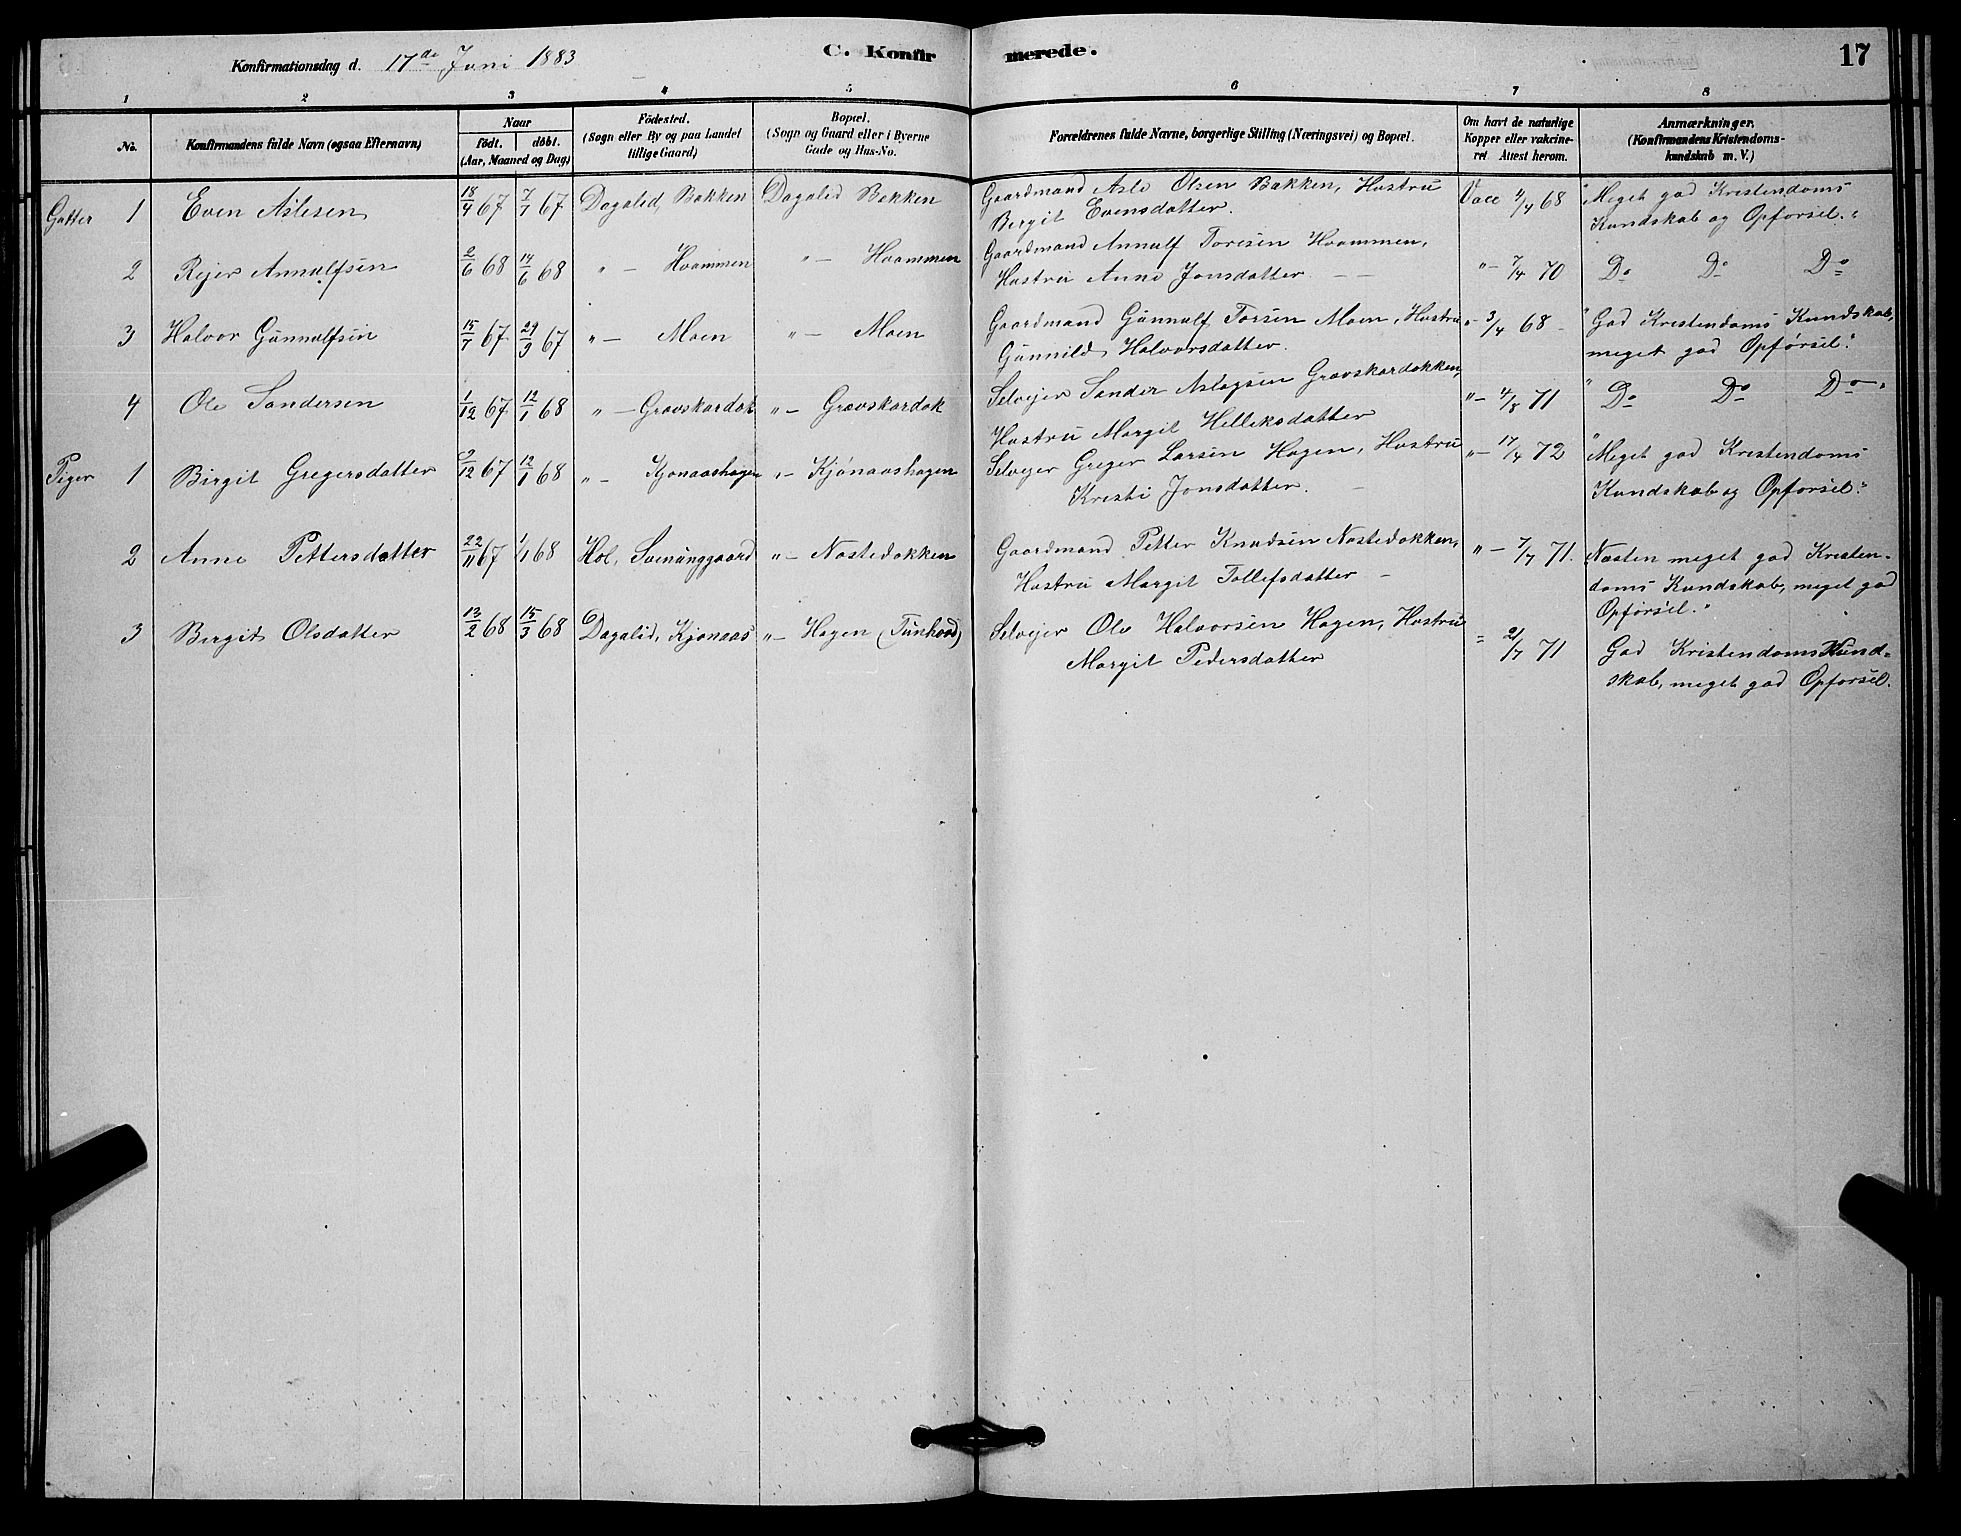 Konfirmationsdag d. 17de Juni 1883
C. Konfirmerede.
17
1 2 3 4 5 6 7 8
No.
Konfirmandens fulde Navn (ogsaa Efternavn)
Naar
født. døbt.
(Aar, Maaned og Dag)
Fødested.
(Sogn eller By og paa Landet
tillige Gaard)
Bopæl.
(Sogn og Gaard eller i Byerne
Gade og Hus-No.
Forældrenes fulde Navne, borgerlige Stilling (Næringsvei) og Bopæl.
Om havt de naturlige
Kopper eller vakcine-
ret Attest herom.
Anmærkninger.
(Konfirmandens Kristendoms-
kundskab m. V.)
Gutter 1 Even Aslesen 18/4 67 7/7 67 Dagalid, Bakken Dagalid Bekken Gaardmand Asle Olsen Bakken, Hustru
Birgit Evensdatter. Vacc 4/4 68 "Meget god Kristendoms
Kundskab og Opførsel."
2 Rejer Annulfsen 2/6 68 14/6 68 " — Hvammen " — Hvammen Gaardmand Annulf Toresen Hvammen,
Hustru Anne Jonsdatter — — " — 7/4 70 Do Do Do
3 Halvor Gunnulfsen 15/7 67 29/9 67 " — Moen " — Moen Gaardmand Gunnulf Torsen Moen, Hustru
Gunnild Halvorsdatter. " 3/4 68 — "God Kristendoms Kundskab,
meget god Opførsel."
4 Ole Sandersen 1/12 67 12/1 68 " — Gravskardok " — Gravskardok Selvejer Sander Aslagsen Gravskardokken,
Hustru Margit Helleksdatter " — 4/8 71 " Do Do Do — "
Piger 1 Birgit Gregersdatter 2/12 67 12/1 68 " — Kjonaashagen " — Kjönaashagen Selvejer Greger Larsen Hagen, Hustru
Kristi Jonsdatter. — " — 17/4 72 "Meget god Kristendoms
Kundskab og Opførsel."
2 Anne Pettersdatter 22/11 67 1/1 68 Hol, Sveinunggaard " — Nastedokken Gaardmand Petter Knudsen Nastedokken,
Hustru Margit Tollefsdatter — " — 7/7 71. Næsten meget god Kristen-
doms Kundskab, meget god
Opførsel."
3 Birgit Olsdatter 13/2 68 15/3 68 Dagalid, Kjonaas " — Hagen (Tunhovd) Selvejer Ole Halvorsen Hagen, Hustru
Margit Pedersdatter = 21/7 71 God Kristendoms Kund-
skab, meget god Opførsel.